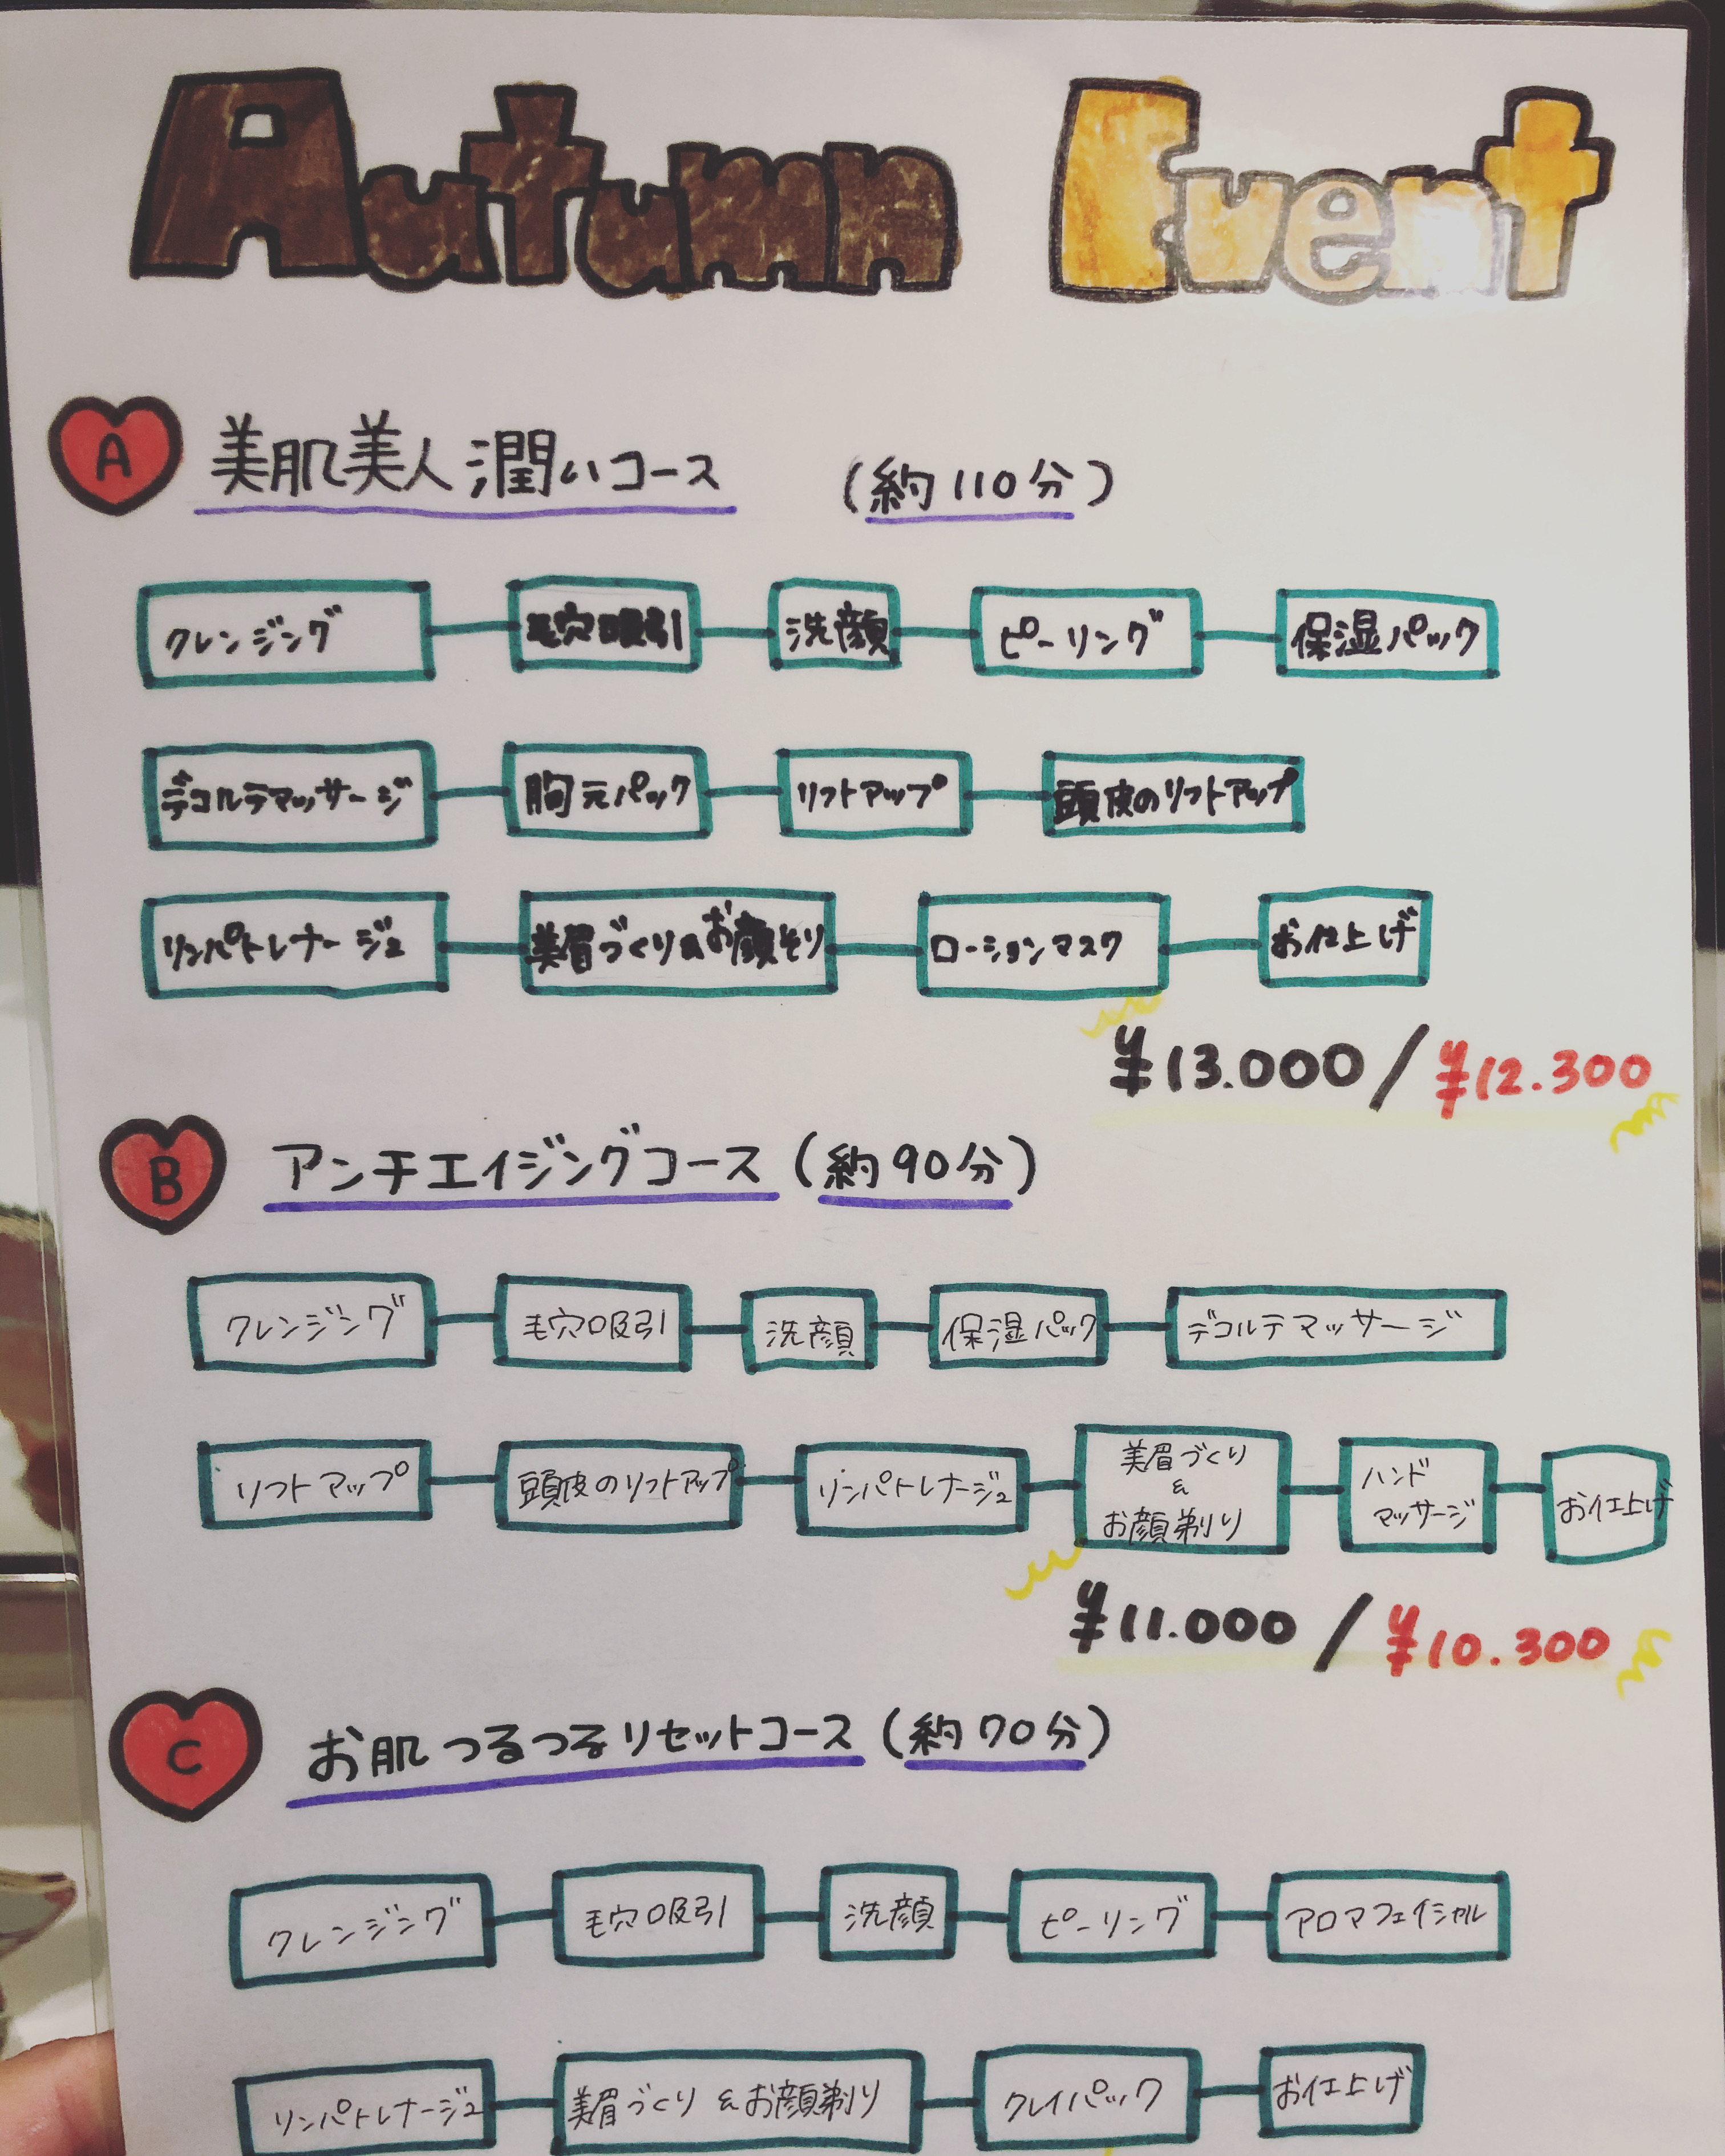 Autumn Event
A 美肌美人潤いコース (約110分)
クレンジング 毛穴吸引 洗顔 ピーリング 保湿パック
デコルテマッサージ 胸元パック リフトアップ 頭皮のリフトアップ
リンパドレナージュ 美眉づくり&お顔そり ローションマスク お仕上げ
¥13.000/¥12.300
B アンチエイジングコース (約90分)
クレンジング 毛穴吸引 洗顔 保湿パック デコルテマッサージ
リフトアップ 頭皮のリフトアップ リンパドレナージュ 美眉づくり & お顔剃り ハンドマッサージ お仕上げ
¥11.000/¥10.300
C お肌つるつるリセットコース (約70分)
クレンジング 毛穴吸引 洗顔 ピーリング アロマフェイシャル
リンパドレナージュ 美眉づくり&お顔剃り クレイパック お仕上げ